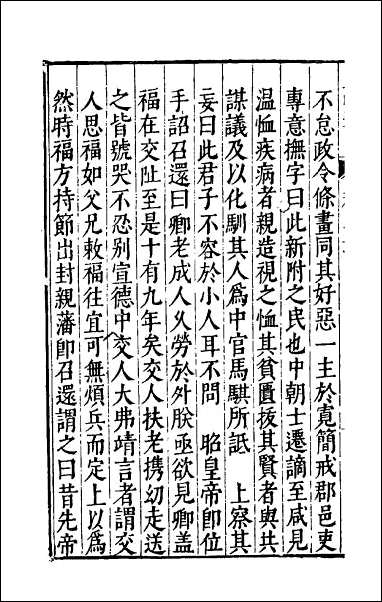 不怠政令條畫同其好惡一主於寛簡戒郡邑吏
專意撫字曰此新附之民也中朝士遷謫至咸見
温恤疾病者親造視之恤其貧匱拔其賢者與共
謀議及以化馴其人爲中官馬騏所詆　上察其
妄曰此君子不容於小人耳不問　昭皇帝卽位
手詔召還曰卿老成人久勞於外朕亟欲見卿蓋
福在交阯至是十有九年矣交人扶老携㓜走送
之皆號哭不忍别宣德中交人大弗靖言者謂交
人思福如父兄敕福往宜可無煩兵而定上以爲
然時福方持節出封親藩卽召還謂之曰昔先帝